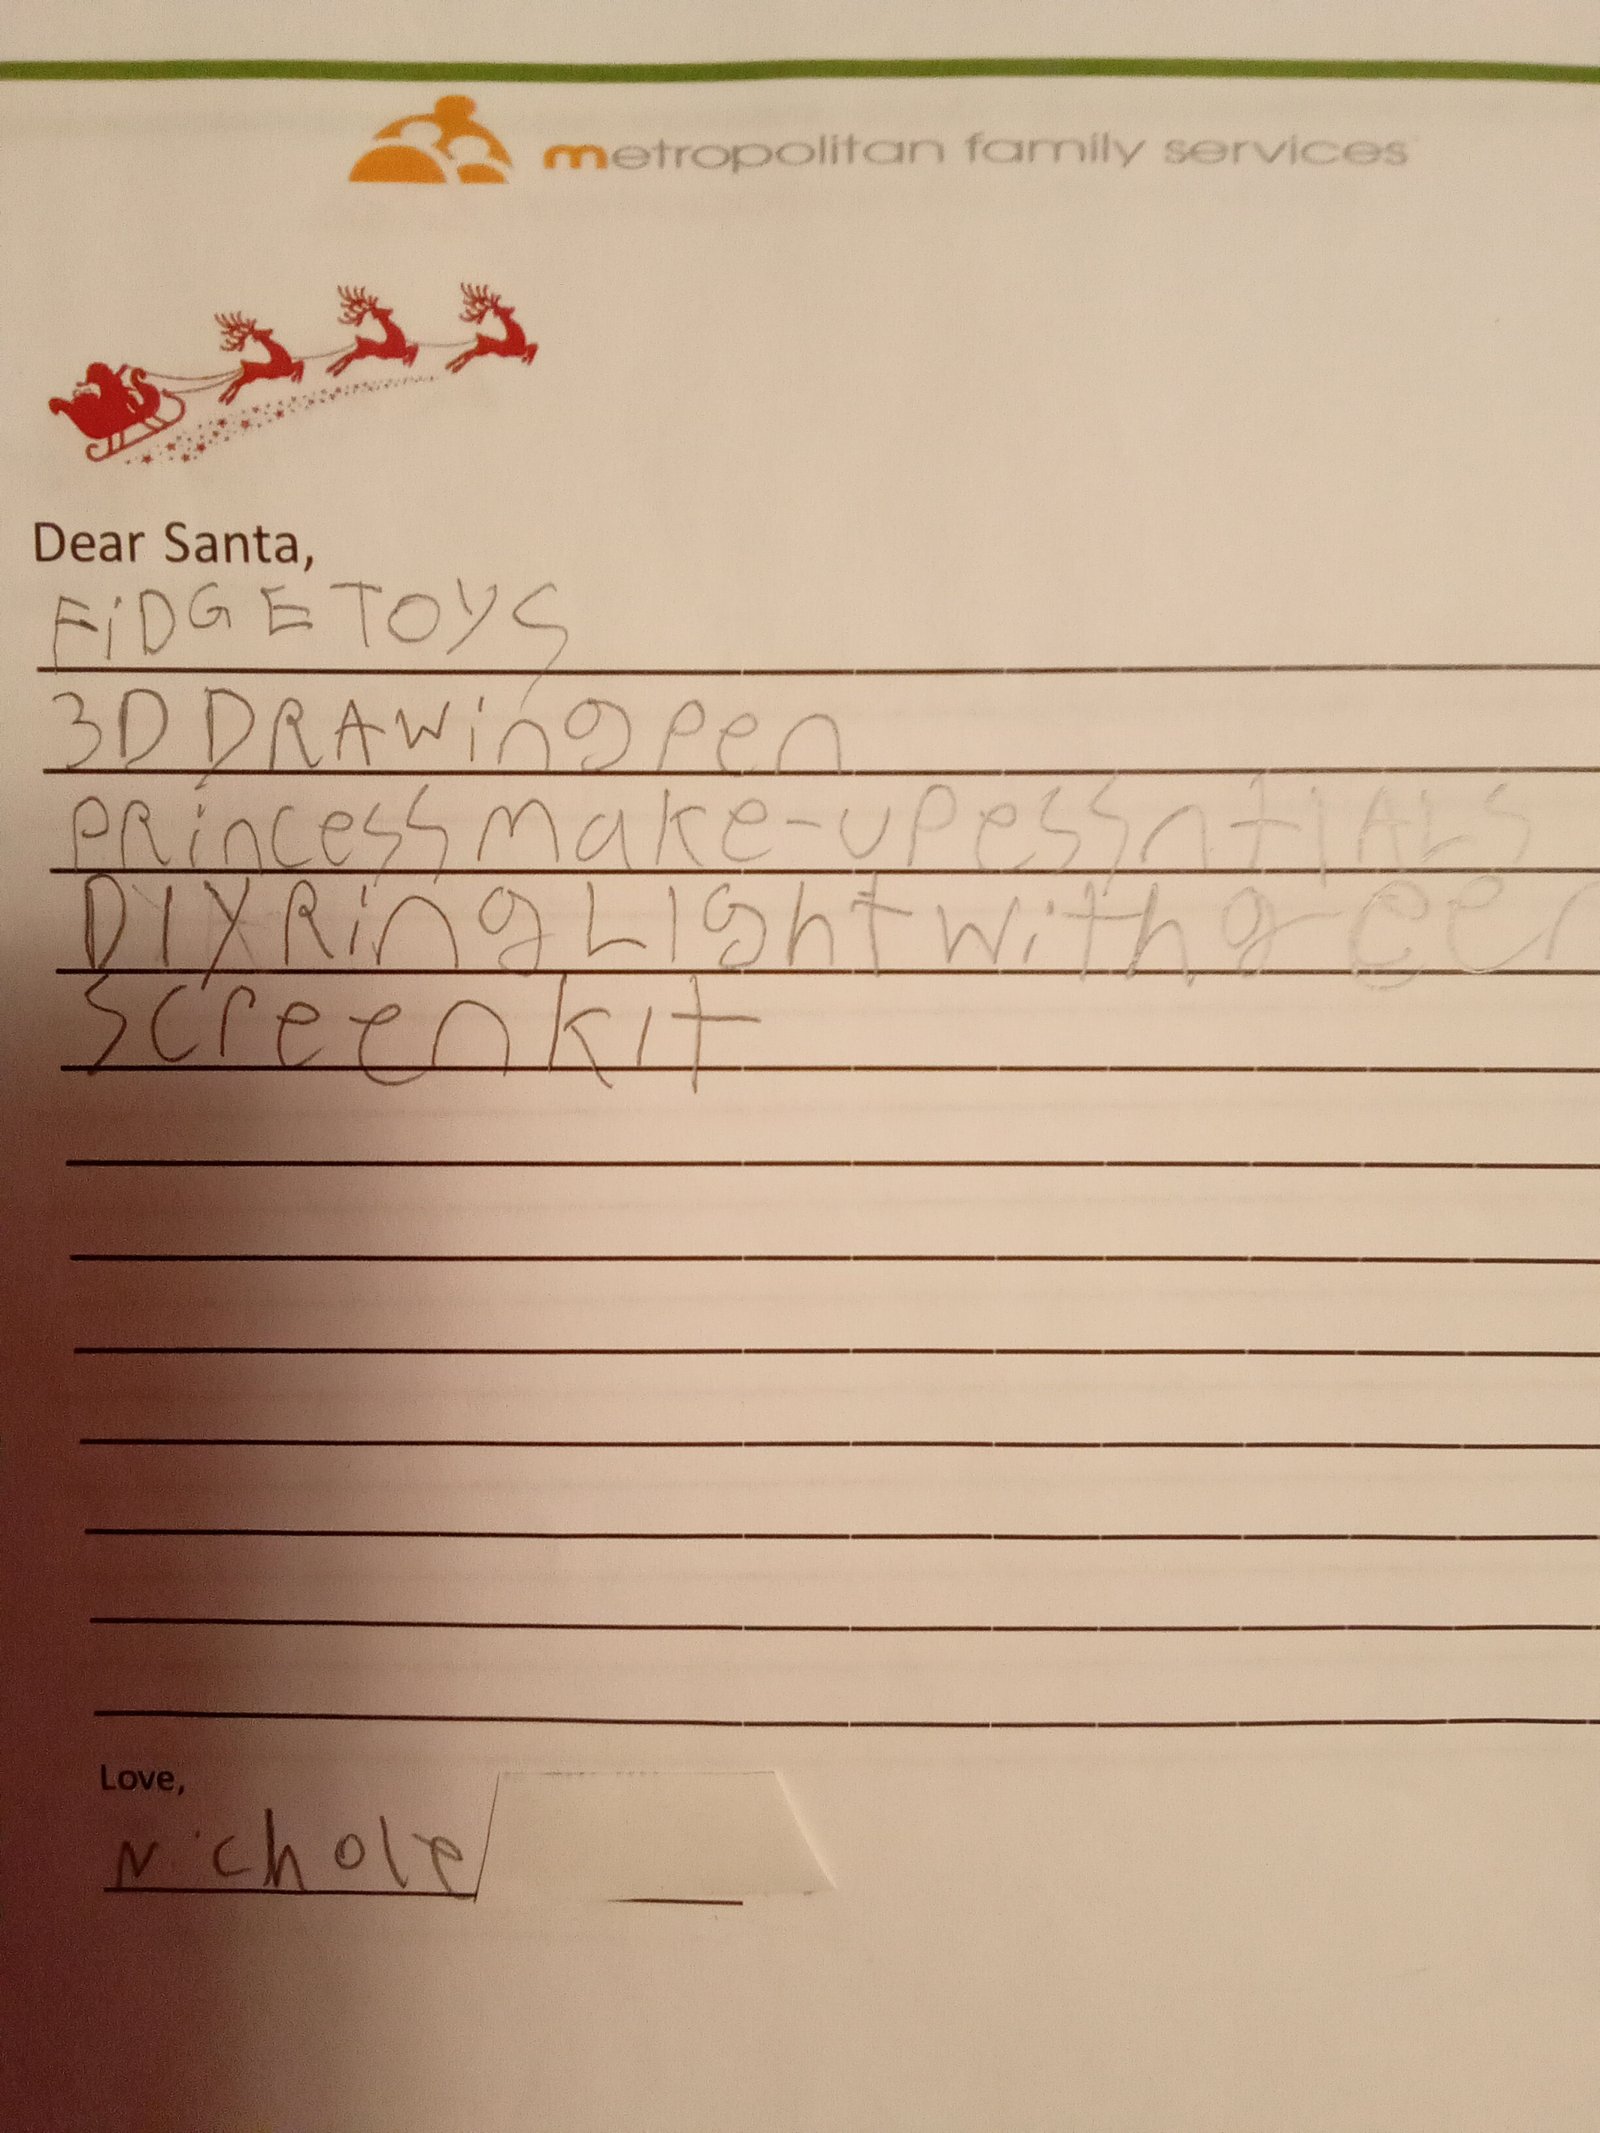 metropolitan family services
Dear Santa,
FiDGE TOYS
3D DRAWing pen
PRincess make-up essntIALS
DIY Ring Light with green
screen kit
Love,
Nichole